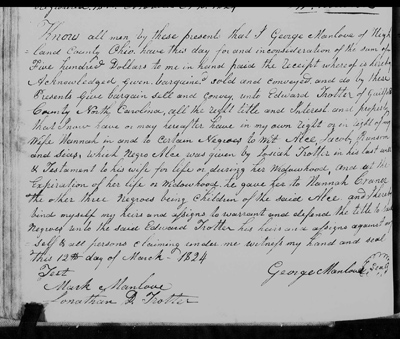 Know all men by these present that I George Manlove of High
land County Ohio have this day for and inconsideration of the sum of
Five hundred Dollars to me in hand paid the Receipt whereof is hereby
Acknowledged Given bargained sold and conveyed and do by these
Presents Give bargain sell and Convey unto Edward Trotter of Guilford
County North Carolina, all the right title and Interest and property
that I now have or may hereafter have in my own right or in right of my
Wife Hannah in and to Certain Negroes to Wit Alce, Jacob,
and which Negro Alce was given by Josiah Trotter in his last will
& Testament to his wife for life or during her Widowhood, and at the
Expiration of her life or Widowhood, he gave her to Hannah
the other three Negroes being Children of the said Alce and I hereby
bind myself my heirs and assigns to warrant and defend the title to said
Negroes unto the said Edward Trotter his heirs and assigns against my
self & all persons claiming under me witness my hand and seal
this 12th day of March 1824
George Manlove Seal
Test
Mark Manlove
Jonathan D Trotter